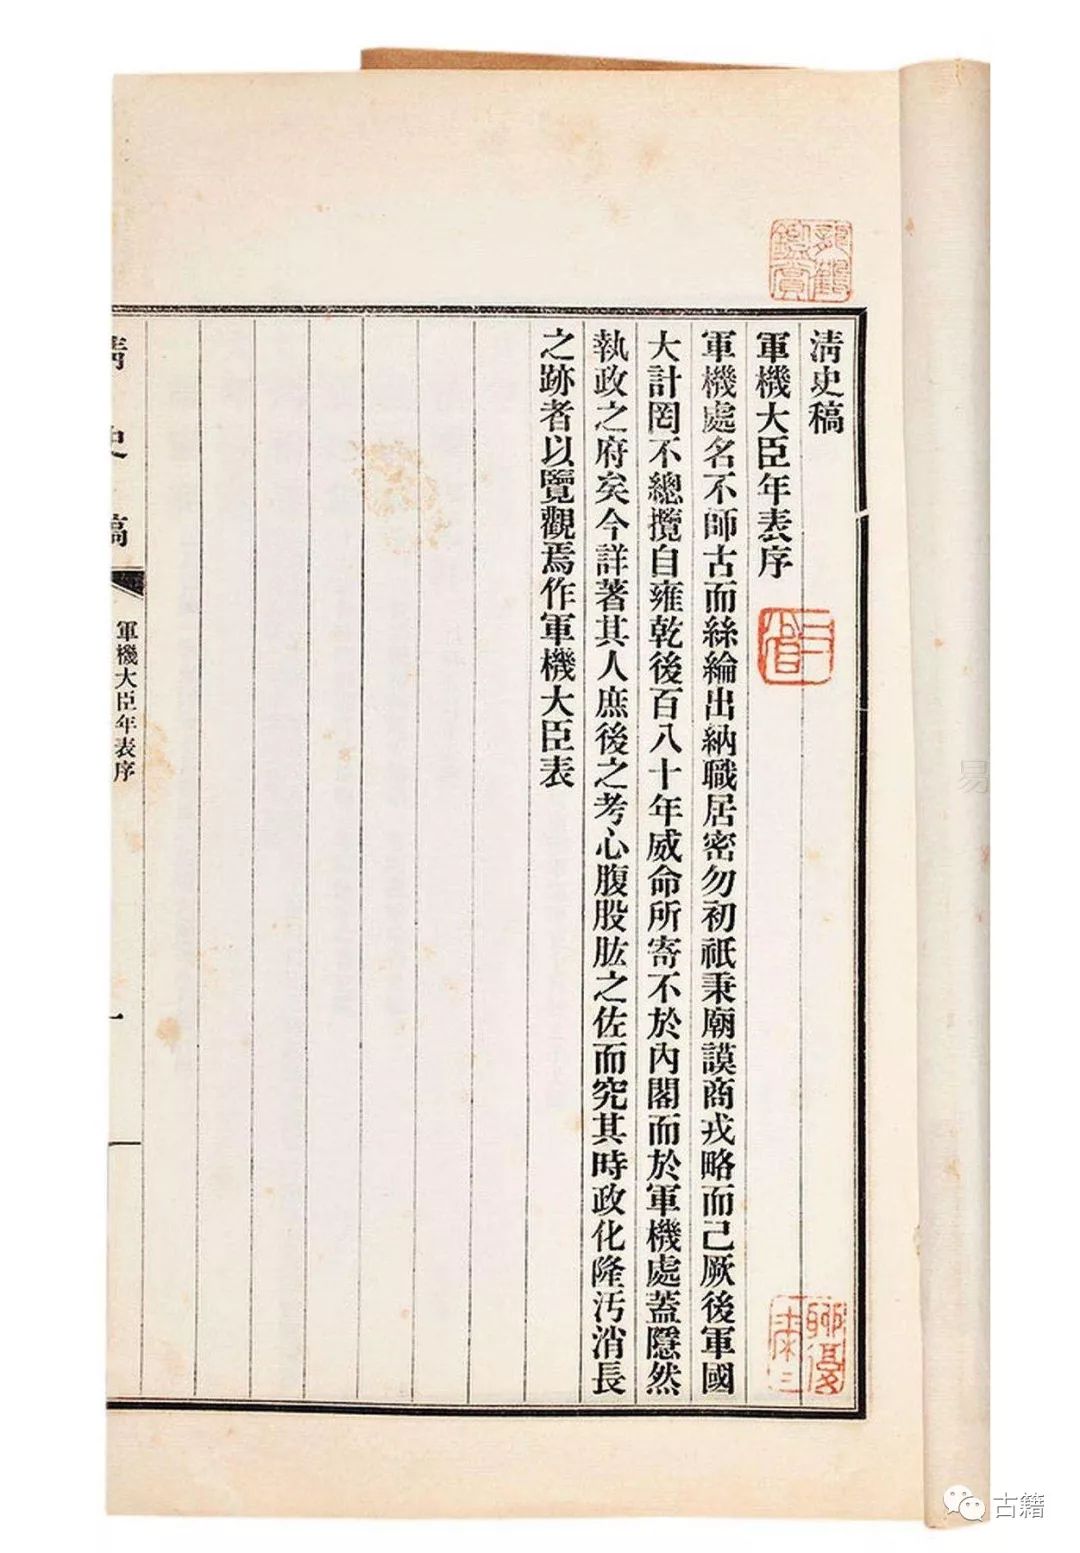 清史稿
軍機大臣年表序
軍機處名不師古而絲綸出納職居密勿初祇秉廟謨商戎略而已厥後軍國
大計罔不總攬自雍乾後百八十年威命所寄不於內閣而於軍機處蓋隱然
執政之府矣今詳著其人庶後之考心腹股肱之佐而究其時政化隆污消長
之跡者以覽觀焉作軍機大臣表
清史稿
軍機大臣年表序
一
鑑賞
易
古籍